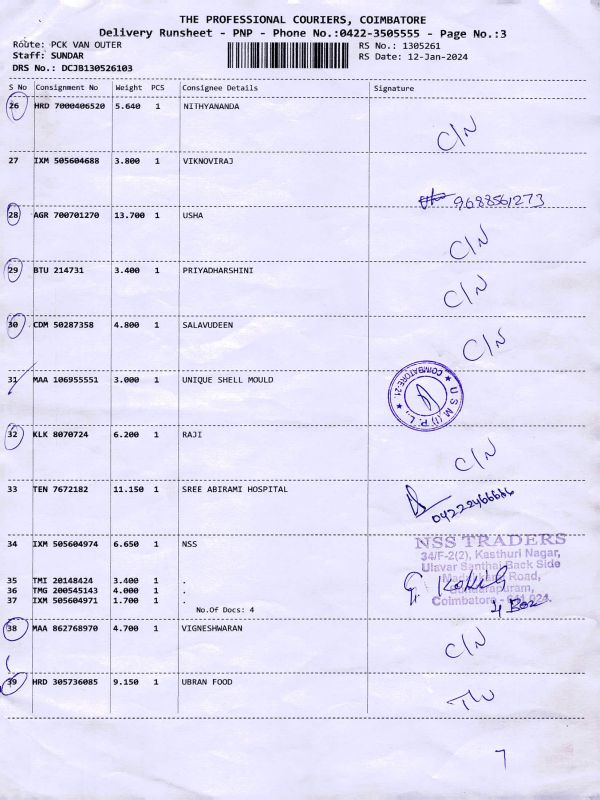 THE PROFESSIONAL COURIERS, COIMBATORE
Delivery Runsheet - PNP - Phone No.:0422-3505555 - Page No.:3
Route: PCK VAN OUTER RS No.: 1305261
Staff: SUNDAR RS Date: 12-Jan-2024
DRS No.: DCJB130526103
S No Consignment No Weight PCS Consignee Details Signature
26 HRD 7000406520 5.640 1 NITHYANANDA
C/N
27 IXM 505604688 3.800 1 VIKNOVIRAJ
9688561273
28 AGR 700701270 13.700 1 USHA
C/N
29 BTU 214731 3.400 1 PRIYADHARSHINI
C/N
30 CDM 50287358 4.800 1 SALAVUDEEN
C/N
31 MAA 106955551 3.000 1 UNIQUE SHELL MOULD
U S M (I) P. L., ★ COIMBATORE-21. ★
32 KLK 8070724 6.200 1 RAJI
C/N
33 TEN 7672182 11.150 1 SREE ABIRAMI HOSPITAL
04222466666
34 IXM 505604974 6.650 1 NSS
NSS TRADERS
34/F-2(2), Kasthuri Nagar,
Ulavar Santhai Back Side
Road,
Sundarapuram,
Coimbatore - 641 024.
35 TMI 20148424 3.400 1 .
36 TMG 200545143 4.000 1 .
37 IXM 505604971 1.700 1 .
No.Of Docs: 4
4 Box
38 MAA 862768970 4.700 1 VIGNESHWARAN
C/N
39 HRD 305736085 9.150 1 UBRAN FOOD
7